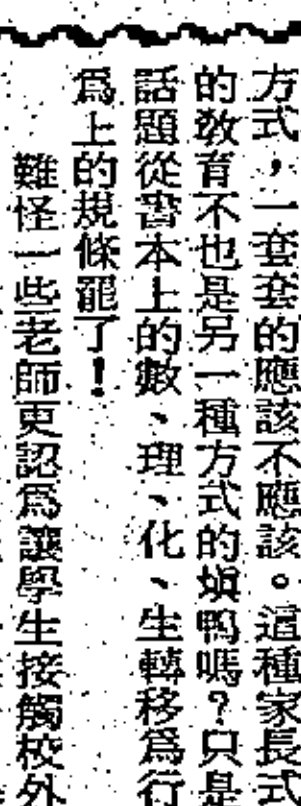 方式，一套套的應該不應該。這種家長式
的教育不也是另一種方式的塡鴨嗎？只是
話題從書本上的數、理、化、生轉移爲行
爲上的規條罷了！
難怪一些老師更認爲讓學生接觸校外